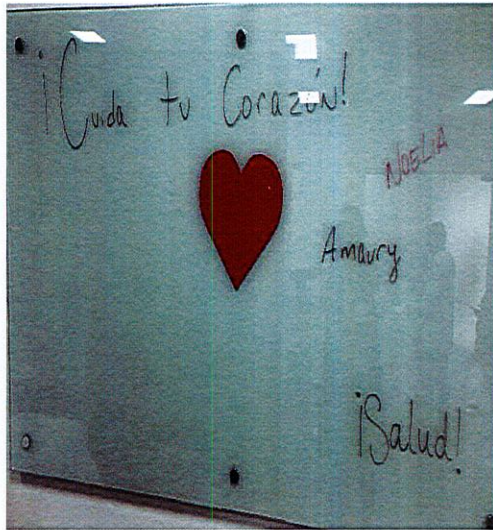 ¡Cuida tu Corazón!
NOELIA
Amaury
¡Salud!